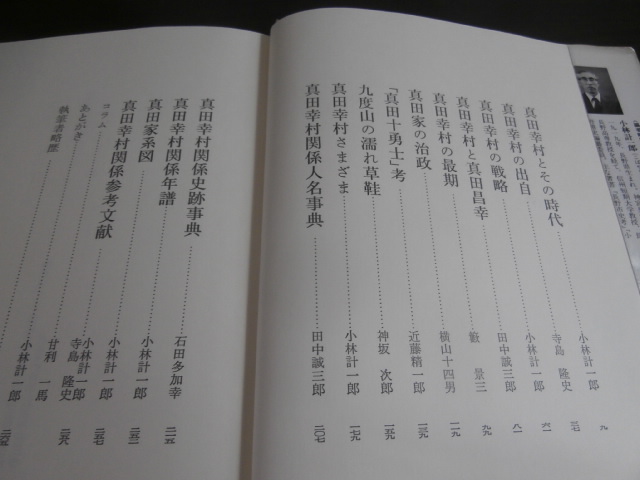 真田幸村とその時代……小林計一郎 九
真田幸村の出自……寺島 隆史 三七
真田幸村の戦略……小林計一郎 六一
真田幸村と真田昌幸……田中誠三郎 八一
真田幸村の最期……籔 景三 九九
真田家の治政……横山十四男 一一九
「真田十勇士」考……近藤精一郎 一三九
九度山の濡れ草鞋……神坂 次郎 一五九
真田幸村さまざま……小林計一郎 一七九
真田幸村関係人名事典……田中誠三郎 二〇七
真田幸村関係史跡事典……石田多加幸 二一五
真田幸村関係年譜……小林計一郎 二五一
真田家系図……小林計一郎 二五七
真田幸村関係参考文献……小林計一郎 寺島 隆史
コラム……甘利 一馬
あとがき……小林計一郎
執筆者略歴
小林計一郎